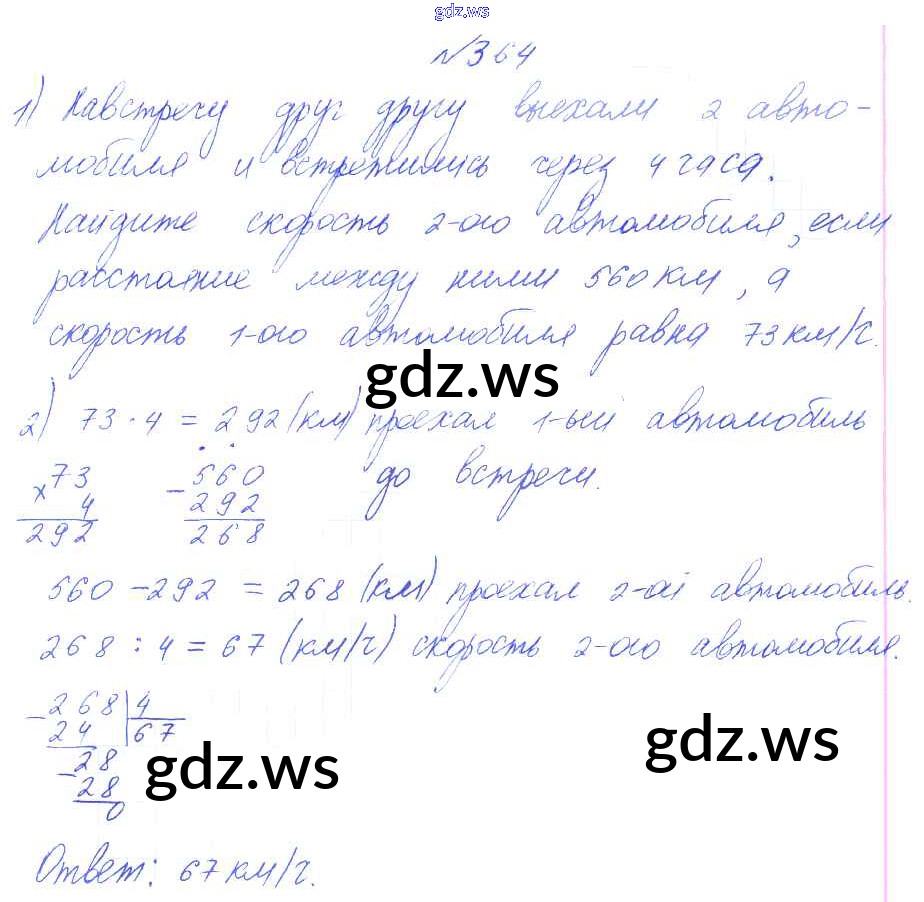 gdz.ws
№364
1) Навстречу друг другу выехали 2 авто-
мобиля и встретились через 4 часа.
Найдите скорость 2-ого автомобиля, если
расстояние между ними 560 км, а
скорость 1-ого автомобиля равна 73 км/ч.
gdz.ws
2) 73 · 4 = 292 (км) проехал 1-ый автомобиль
до встречи.
× 73
4
292
- 560
292
268
560 - 292 = 268 (км) проехал 2-ой автомобиль.
268 : 4 = 67 (км/ч) скорость 2-ого автомобиля.
- 268 | 4
24 67
- 28
28
0
gdz.ws
gdz.ws
Ответ: 67 км/ч.